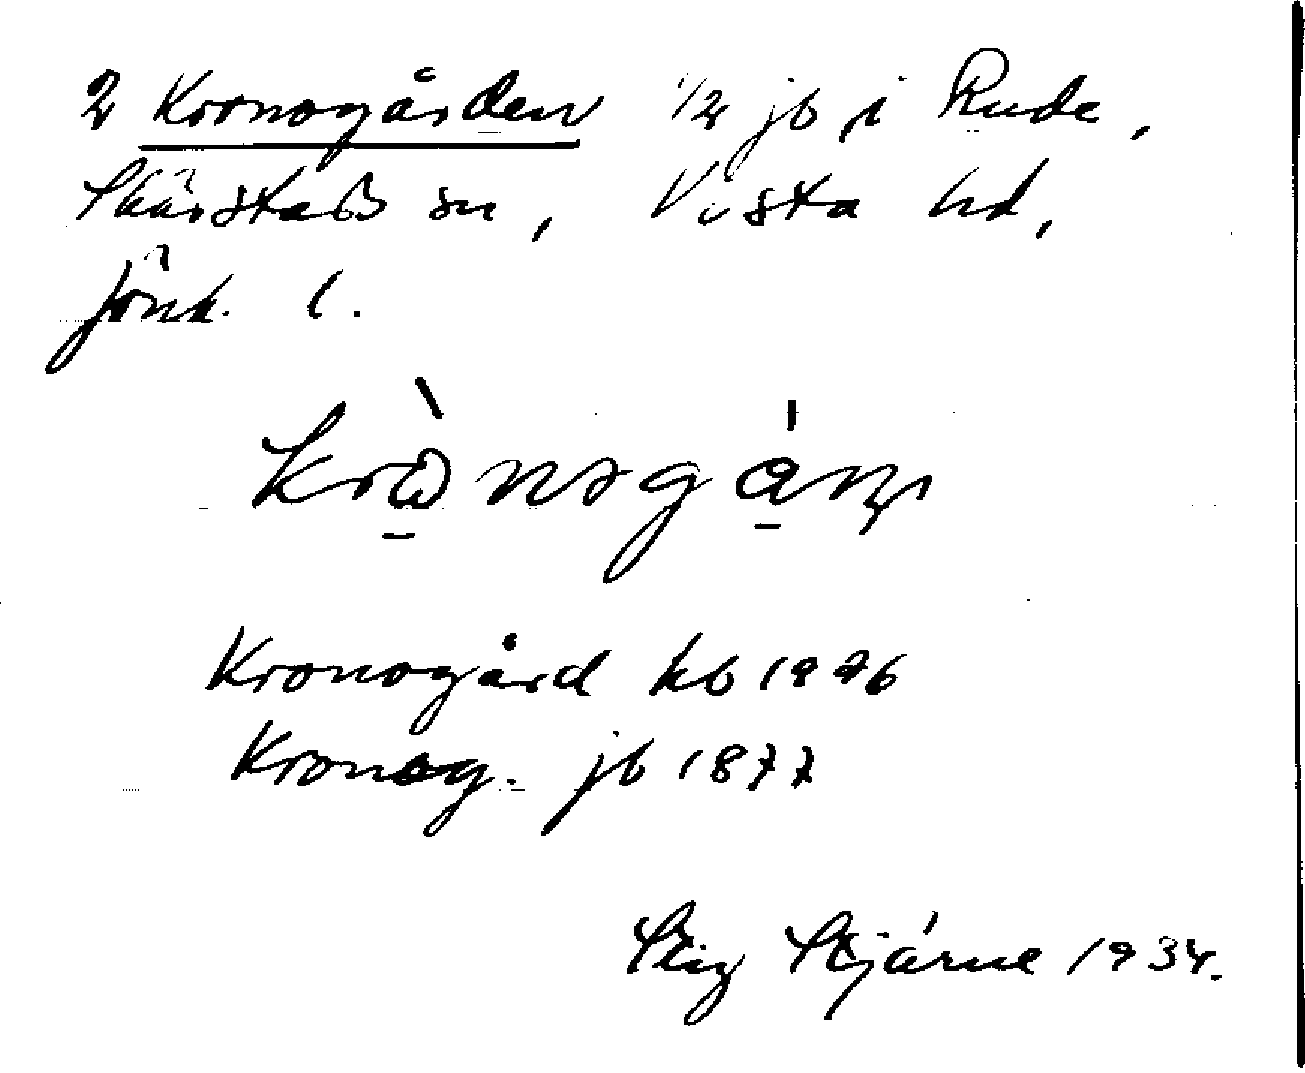 2 Kronogården 1/2 jb i Rude,
Skärstads sn, Vista hd,
Jönk. l.
Kronogård kb 1926
Kronog. jb 1877
Stig Stjärne 1934.